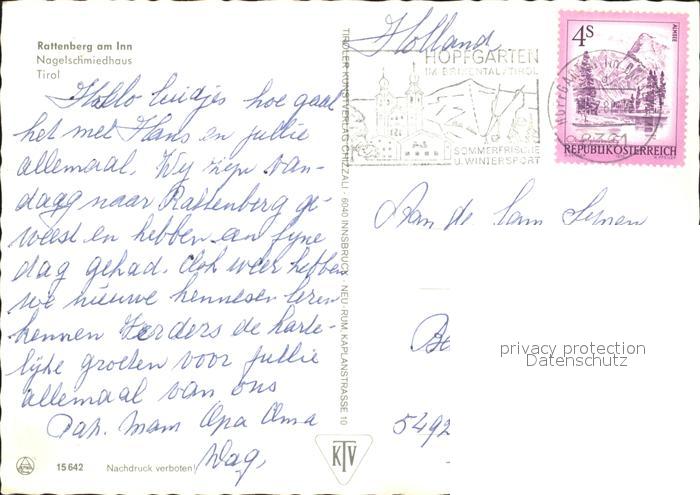 Rattenberg am Inn
Nagelschmiedhaus
Tirol
Hallo luidjes hoe gaat
het met Hans en jullie
allemaal. Wy zyn van-
daag naar Rattenberg ge-
weest en hebben een fyne
dag gehad. Ook weer hebben
we nieuwe kennesen leren
kennen Verders de harte-
lyke groeten voor jullie
allemaal van ons
Pap. Mam Opa Oma
Dag,
15 642 Nachdruck verboten!
TIROLER KUNSTVERLAG CHIZZALI · 6040 INNSBRUCK - NEU-RUM, KAPLANSTRASSE 10
KTV
Holland
HOPFGARTEN
IM BRIXENTAL/TIROL
SOMMERFRISCHE
U. WINTERSPORT
6361
4S
ALMSEE
REPUBLIK ÖSTERREICH
Aan de Fam
Be
5492
privacy protection
Datenschutz